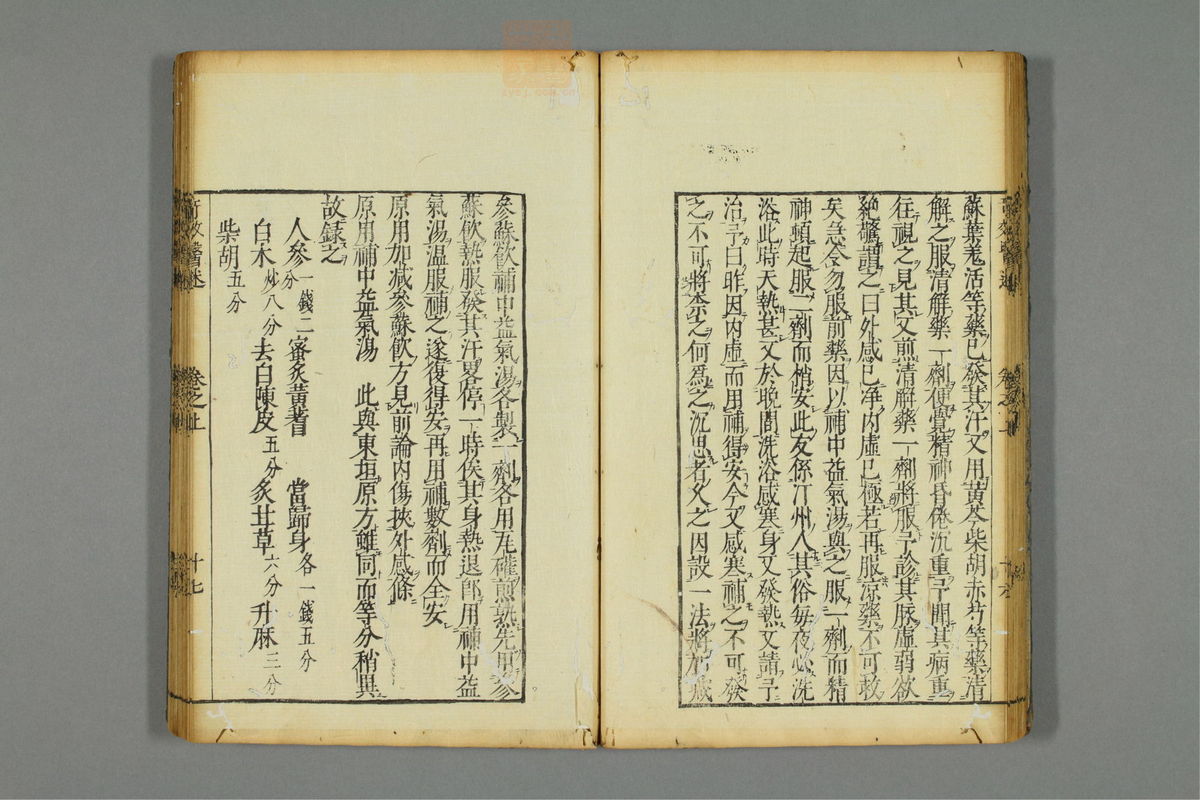 蘇葉羗活等藥已發其汗又用黃芩柴胡赤芍等藥清
解之服清解藥一劑便覺精神昏倦沉重予聞其病重
往視之見其又煎清解藥一劑將服予診其脉虛弱欲
絶驚謂之曰外感已净内虛已極若再服凉藥不可救
矣急令勿服前藥因以補中益氣湯與之服一劑而精
神頓起服二劑而悄安此友係汀州人其俗每夜必洗
浴此時天熱甚又於晩間洗浴感寒身又發熱又請予
治予曰昨因内虛而用補得安今又感寒補之不可發
之不可將柰之何爲之沉思者久之因設一法將加减
參蘇飲補中益氣湯各製一劑各用瓦確煎熟先用參
蘇飲熱服發其汗畧停一時俟其身熱退郎用補中益
氣湯温服補之遂復得安再用補數劑而全安
原用加减參蘇飲方見前論内傷挾外感條
原用補中益氣湯 此與東垣原方雖同而等分稍異
故録之
人參一錢二分 蜜炙黃耆 當歸身各一錢五分
白术炒八分 去白陳皮五分 炙甘草六分 升麻三分
柴胡五分
卷之上
十七